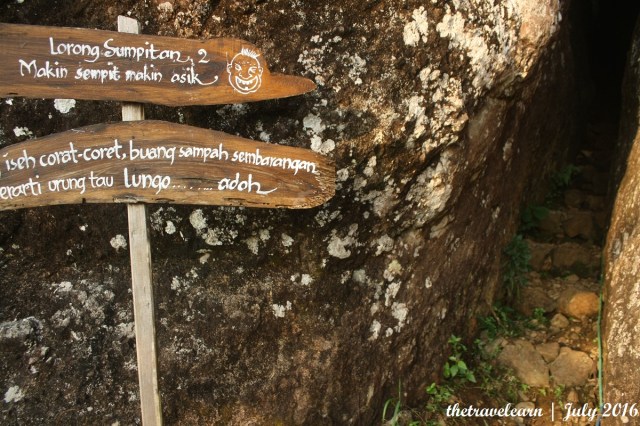 Lorong Sumpitan 2
Makin sempit makin asik
iseh corat-coret, buang sampah sembarangan
erarti urung tau lungo........adoh
thetravelearn | July 2016